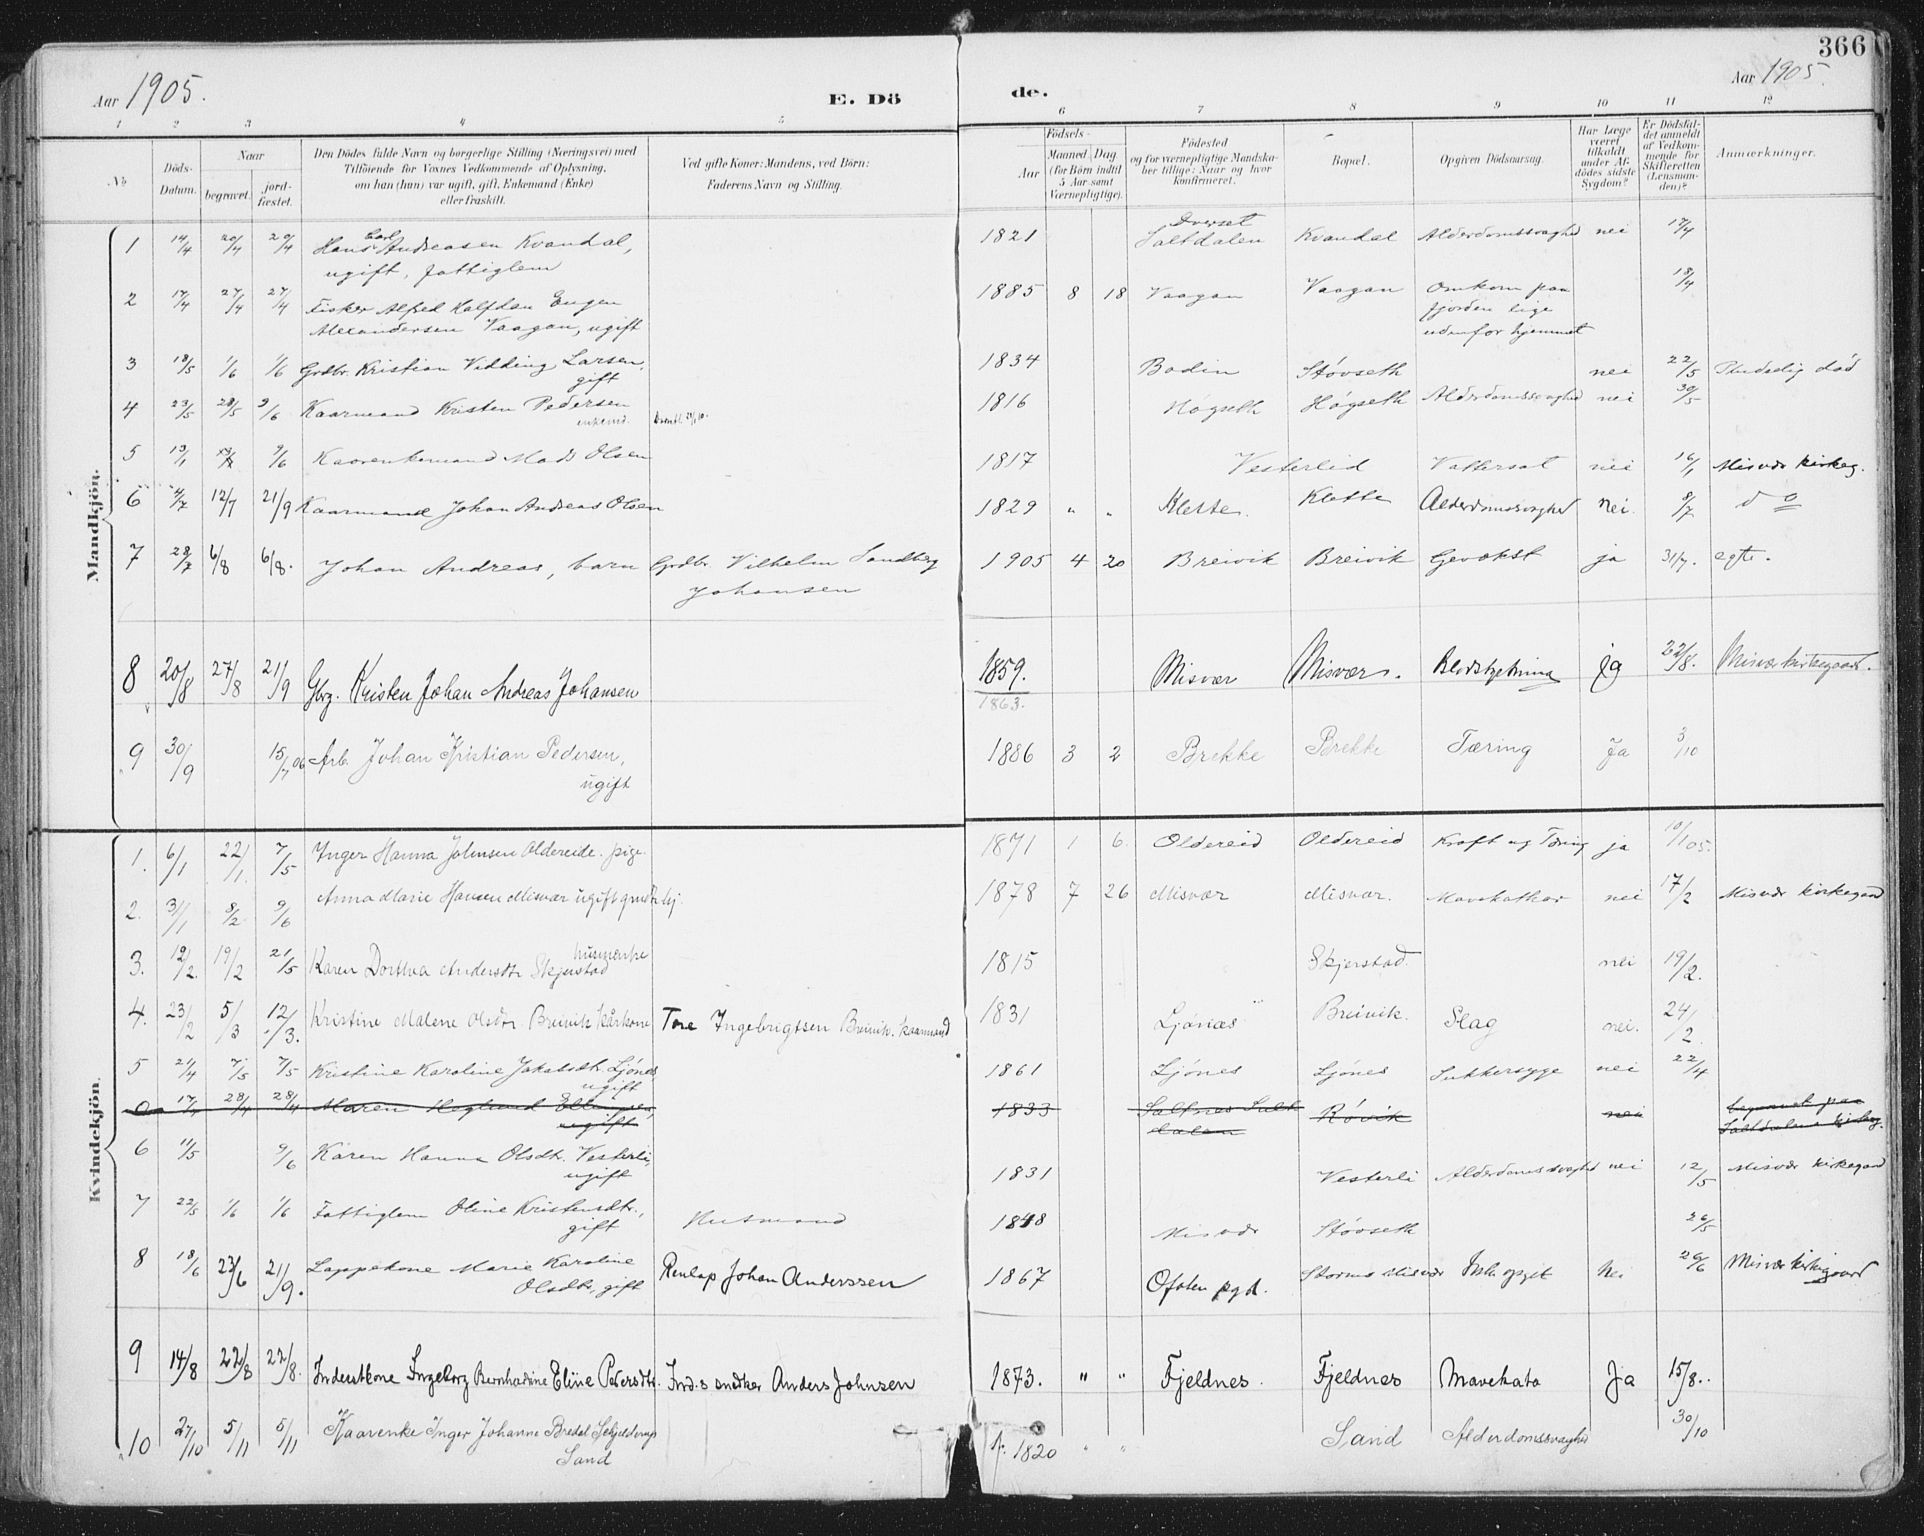 366
Aar 1905.
E. Dö
de.
Aar 1905.
1 2 3 4 5 6 7 8 9 10 11 12
No
Döds-Datum.
Naar
begravet.
jord-fæstet.
Den Dödes fulde Navn og borgerlige Stilling (Næringsvei) med
Tilföiende for Voxnes Vedkommende af Oplysning,
om han (hun) var ugift, gift, Enkemand (Enke)
eller fraskilt.
Ved gifte Koner: Mandens, ved Börn:
Faderens Navn og Stilling.
Födsels-
Aar
Maaned Dag
(for Börn indtil
5 Aar samt
Værnepligtige).
Födested
og for værnepligtige Mandska-
ber tillige: Naar og hvor
konfirmeret.
Bopæl.
Opgiven Dödsaarsag.
Har Læge
været
tilkaldt
under Af-
dödes sidste
Sygdom?
Er Dödsfal-
det anmeldt
af Vedkom-
mende for
Skifteretten
(Lensman-
den)?
Anmærkninger.
Mandkjön.
1 14/4 20/4 20/4 Hans Carl Andreasen Kvandal, 1821 Saltdalen Kvandal Alderdomssvaghed nei 17/4
ugift, fattiglem
2 17/4 27/4 27/4 Fisker Alfred Halfdan Eugen 1885 8 18 Vaagan Vaagan Omkom paa 18/4
Alexandersen Vaagan, ugift fjorden lige
udenfor hjemmet
3 18/5 1/6 1/6 Grdbr. Kristian Vidding Larsen, 1834 Bodin Støvseth nei 22/5 Pludselig død
gift
4 23/5 28/5 9/6 Kaarmand Kristen Pedersen 1816 Høgseth Høgseth Alderdomssvaghed nei 30/5
enkemd.
5 13/1 9/6 Kaarenkemand Mads Olsen 1817 Vesterlid nei 16/1 Misvær kirkeg.
6 4/7 12/7 21/9 Kaarmand Johan Andreas Olsen 1829 " " Klette. Klette Alderdomssvaghed Nei. 8/7 do
7 28/7 6/8 6/8. Johan Andreas, barn Grdbr. Vilhelm Sandberg 1905 4 20 Breivik Breivik Gevækst ja 31/7. egte.
Johansen
8 20/8 27/8 21/9 Gbrg. Kristen Johan Andreas Johansen 1859. Misvær Misvær. Blodstyrtning ja 22/8. Misvær kirkegaard.
1863.
9 30/9 15/7 06 Arb. Johan Kristian Pedersen, 1886 3 2 Brekke Brekke Tæring Ja 3/10
ugift
Kvindekjön.
1. 6/1 22/1. 7/5 Inger Hanna Johnsen Oldereide. pige. 1871 1 6 Oldereid Oldereid Kræft og Tæring ja 10/1 05.
2. 31/1 8/2 9/6 Anna Marie Hansen Misvær ugift 1878 7 26 Misvær Misvær. Mavekathar nei 17/2 Misvær kirkegaard
3. 12/2. 19/2 21/5 Karen Dorthea Andersdtr Skjerstad husmenke 1815 Skjerstad. nei 19/2.
4. 23/2 5/3 12/3. Kristine Malene Olsdtr Breivik kårkone Tore Ingebrigtsen Breivik. kaarmand 1831 Ljónæs Breivik. Slag nei. 24/2
5 21/4 7/5 7/5 Kristine Karoline Jakobsdtr. Ljónes, 1861 Ljónes Ljónes Sukkersyge nei 22/4
ugift
17/4 28/4 28/4 Maren Heglund Ellingsen, 1833 Saltnes Salt Røvik nei begravet paa
ugift dalen Saltdalens kirkeg.
6 11/5 9/6 Karen Hanna Olsdtr. Vesterli, 1831 Vesterli Alderdomssvaghed nei 12/5 Misvær kirkegaard
ugift
7 22/5 1/6 1/6 Fattiglem Oline Kristensdtr., Husmand 1848 Misvær Støvseth 26/5
gift
8 18/6 23/6 21/9. Lappekone Marie Karoline Renlap Johan Anderssen 1867 Ofoten pgd. Storms Misvær Ikke opgit Nei 26/6 Misvær kirkegaard
Olsdtr, gift
9 14/8 22/8 22/8. Inderstkone Ingeborg Bernhardine Eline Pedersdtr. Ind.s snedker Anders Johnsen 1873. " " Fjeldnes. Fjeldnes Mavekata Ja 15/8..
10 27/10 5/11 5/11 Kaarenke Inger Johanne Bredal Schjelderup f. 1820 " " Sand Alderdomssvaghed 30/10
Sand